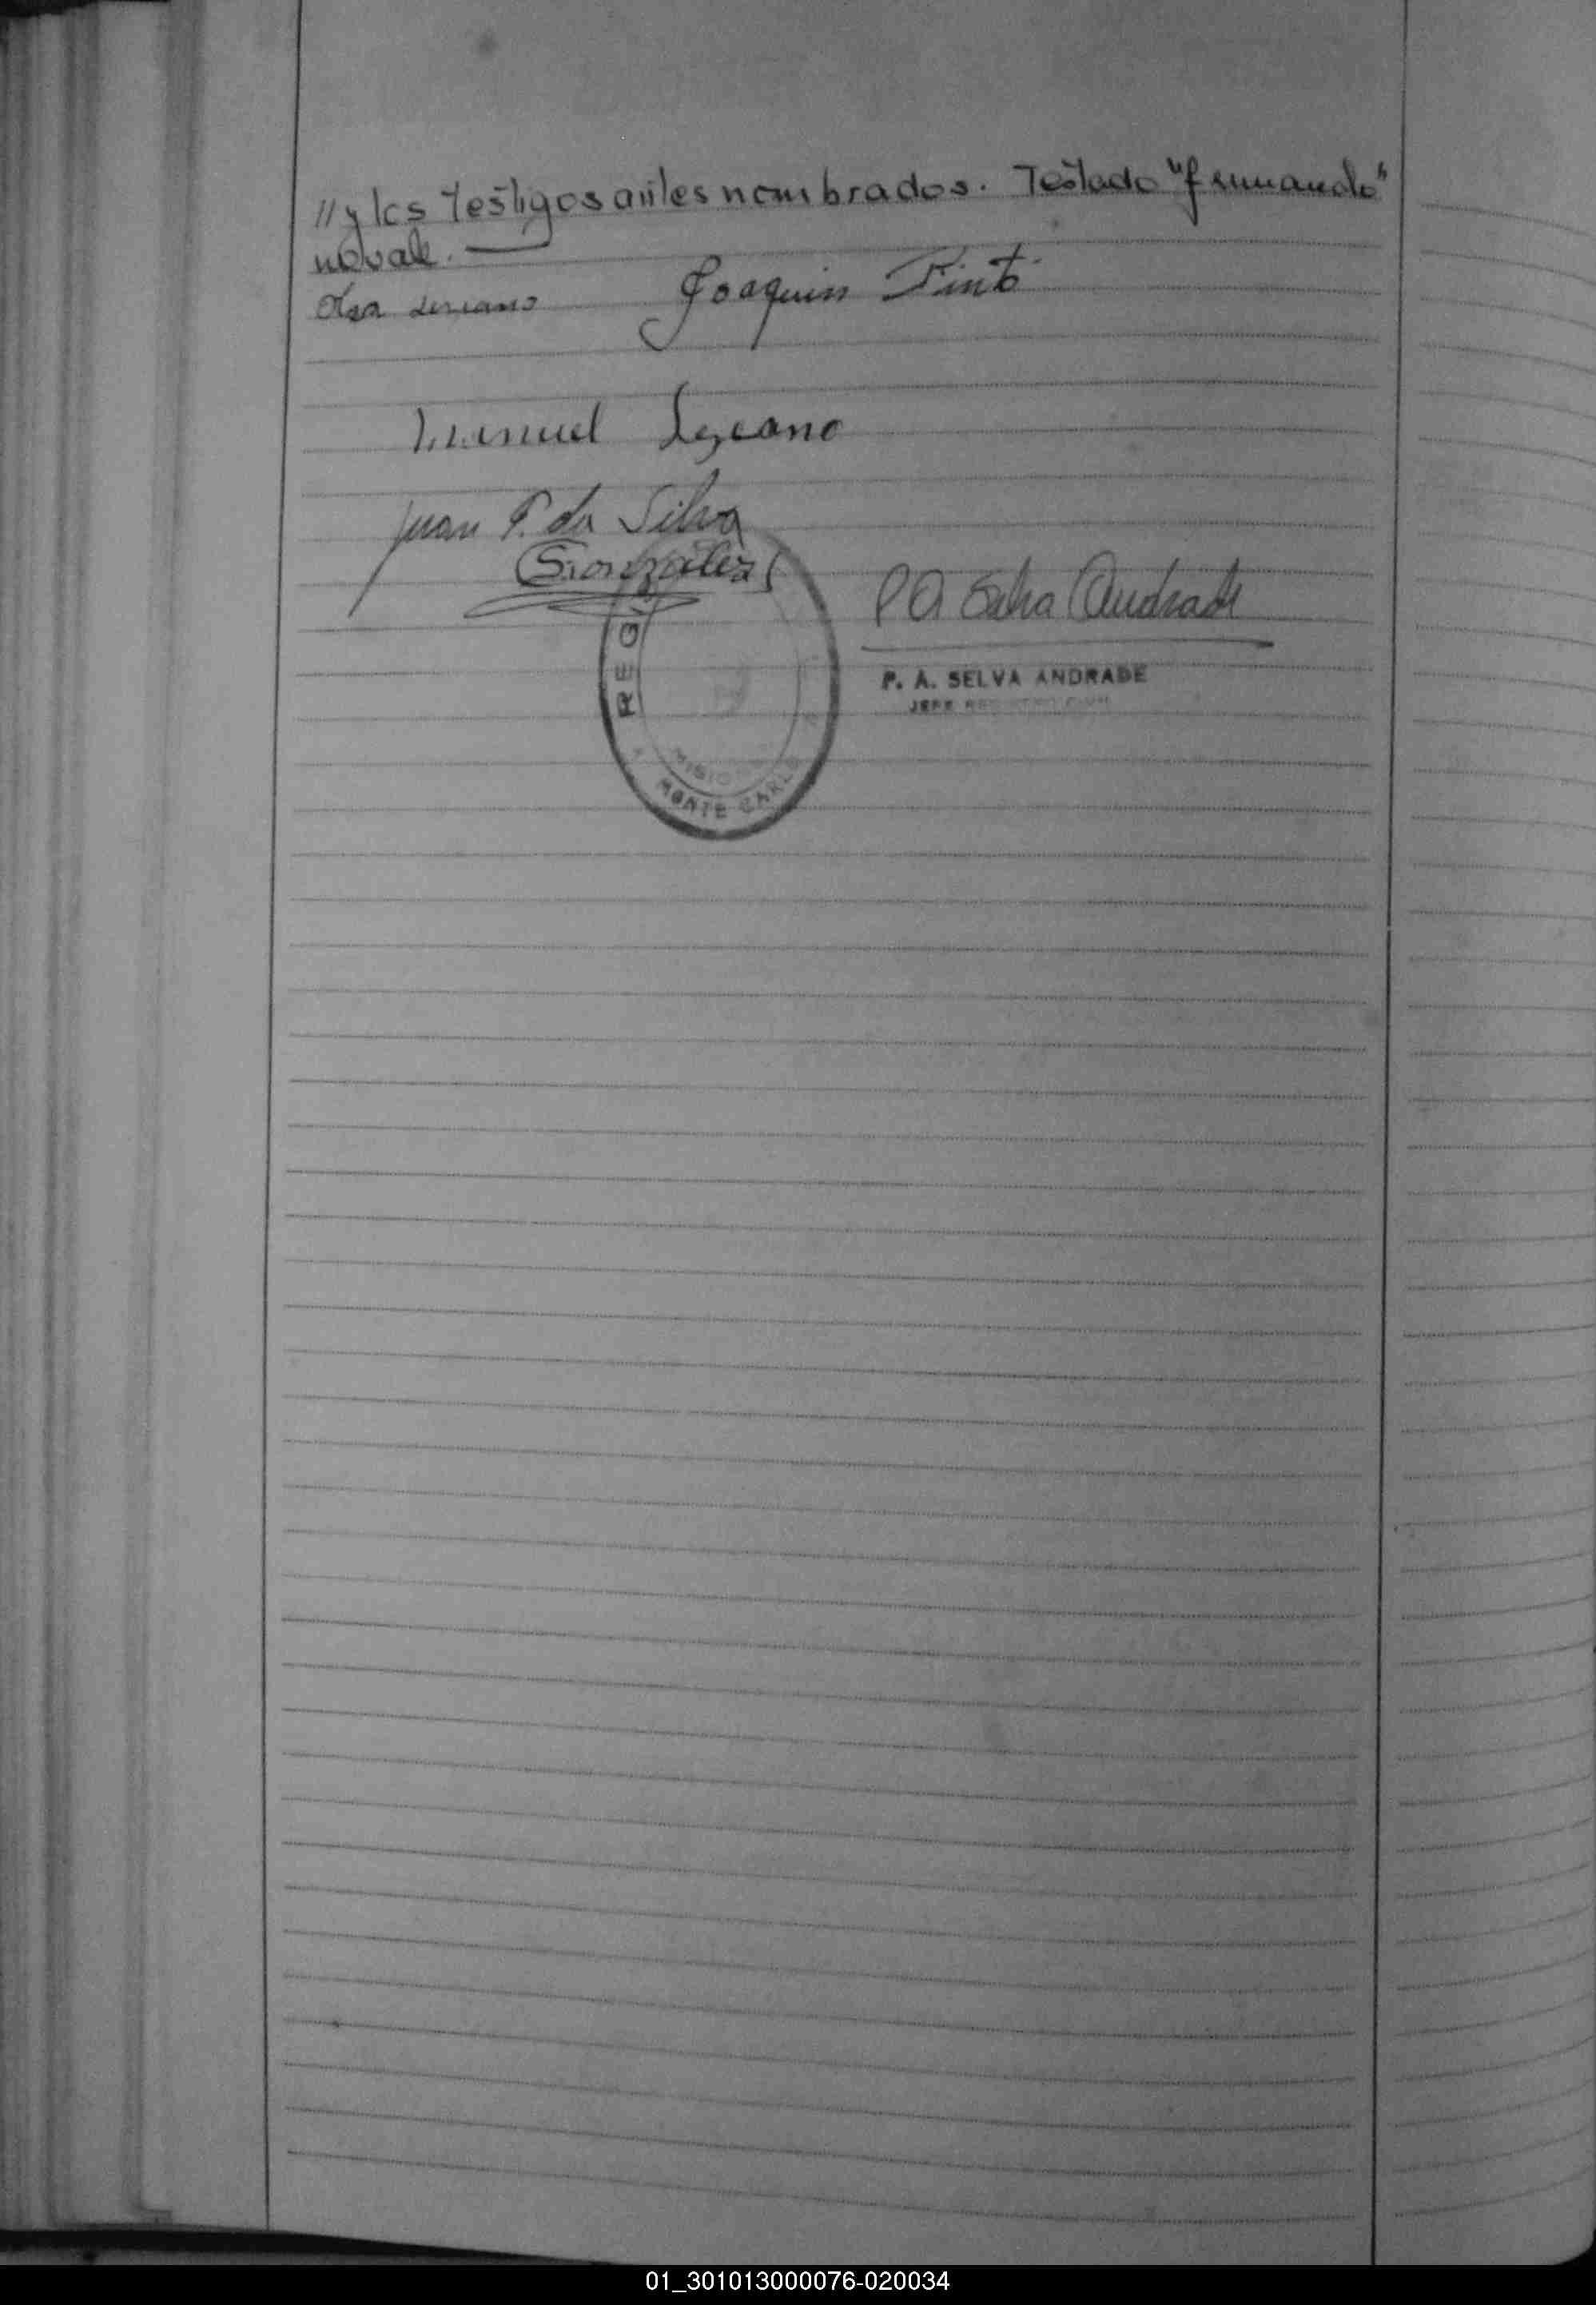 // y los testigos antes nombrados. Testado "fernando"
no vale.
Olga Lezcano Joaquin Pinto
Manuel Lezcano
Juan P. da Silva
Gonzalez
P A Selva Andrade
P. A. SELVA ANDRADE
JEFE REGISTRO CIVIL
REG
MISIONES
MONTE CARLO
01_301013000076-020034